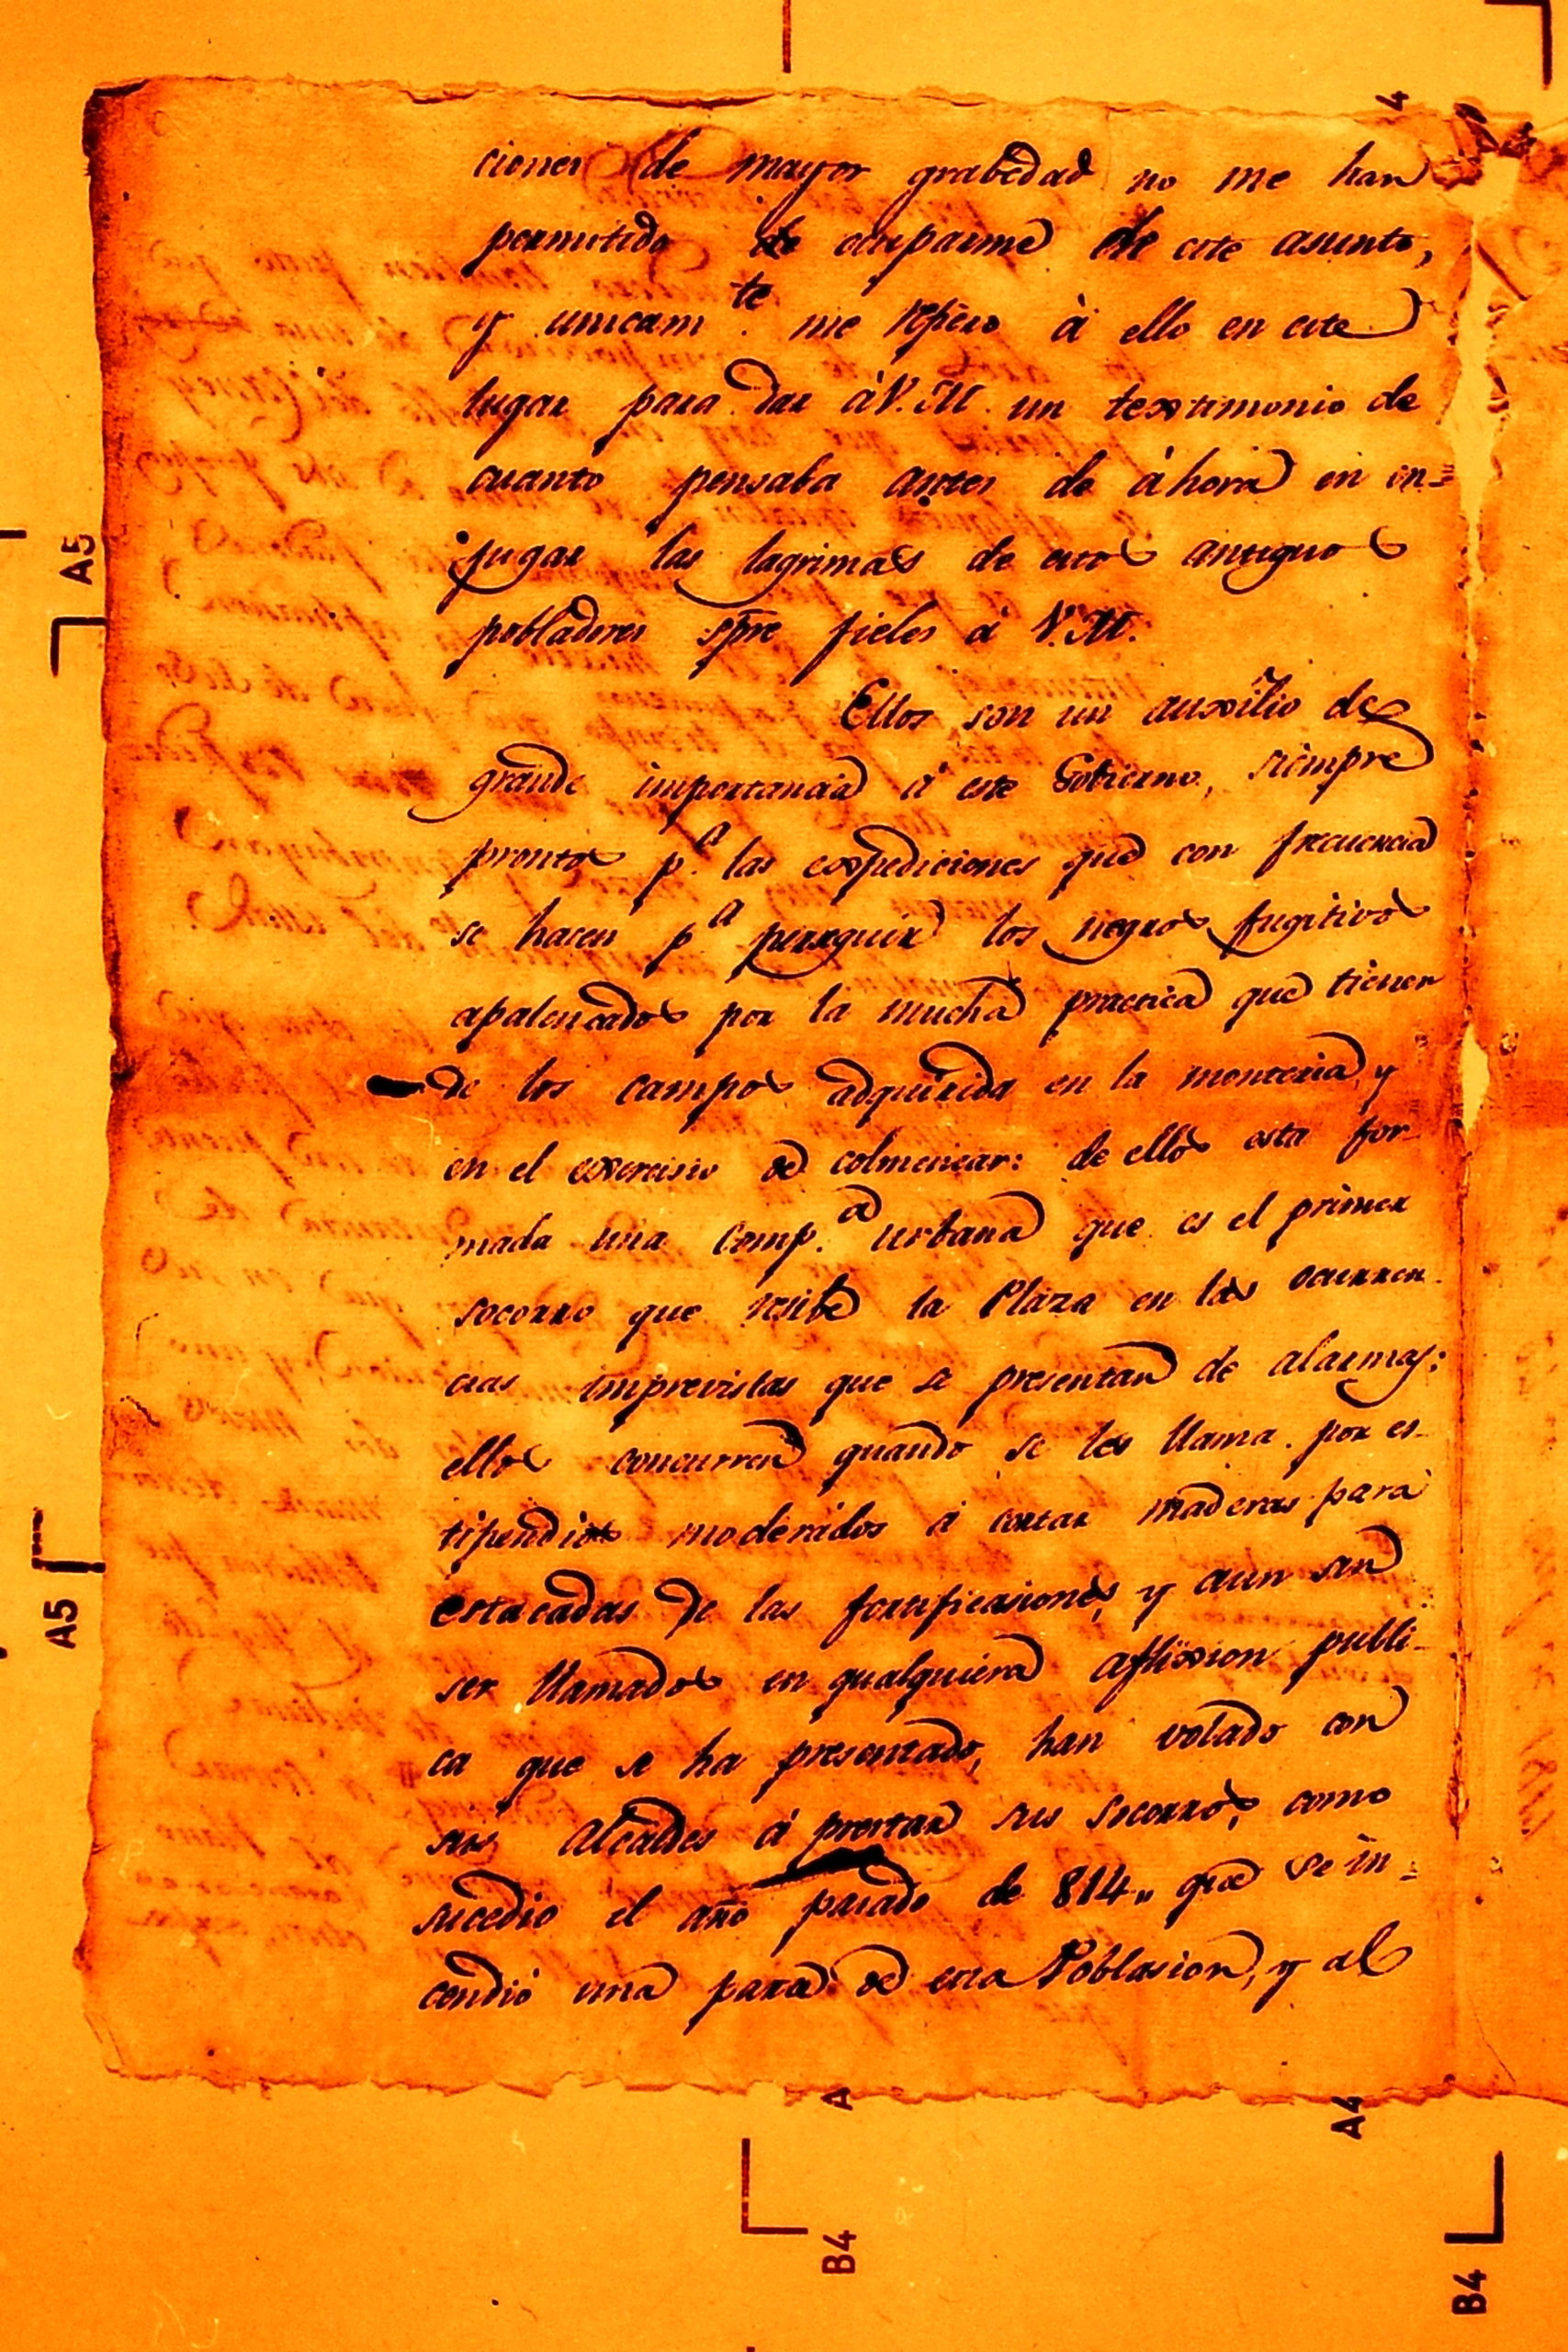 4
ciones de mayor grabedad no me han
permitido de ocuparme de este asunto,
y unicam.te me refiero à ello en este
lugar para dar à V.M. un textimonio de
cuanto pensaba antes de àhora en en=
jugar las lagrimas de estos antiguos
pobladores spre fieles à V.M.
Ellos son un auxilio de
grande importancia à este Gobierno, siempre
prontos p.a las expediciones que con frecuencia
se hacen p.a perseguir los negros fugitivos
apalencados por la mucha practica que tienen
de los campos adquirida en la monteria, y
en el exercisio de colmenear: de ellos esta for-
mada una comp.a urbana que es el primer
socorro que resibe la Plaza en las ocurren-
cias imprevistas que se presentan de alarmas:
ellos concurren quando se les llama por es-
tipendios moderados à cortar maderas para
estacadas de las fortificasiones, y aun sin
ser llamados en qualquiera aflixion publi-
ca que se ha presentado, han volado con
sus Alcaldes à prestar sus socorros, como
sucedio el año pasado de 814,, que se in=
cendió una parà de esta Poblasion, y al
A5
A5
A
A4
B4
B4